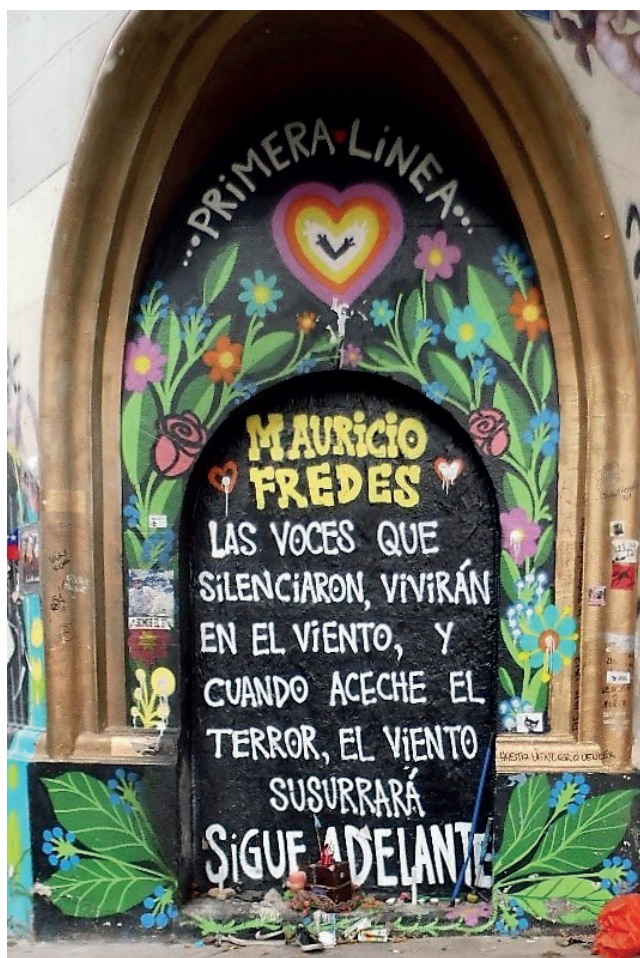 ...PRiMERA LiNEA...
MAURiCiO
FREDES
LAS VOCES QUE
SiLENCiARON, ViViRÁN
EN EL ViENTO, Y
CUANDO ACECHE EL
TERROR, EL ViENTO
SUSURRARÁ
SiGUE ADELANTE